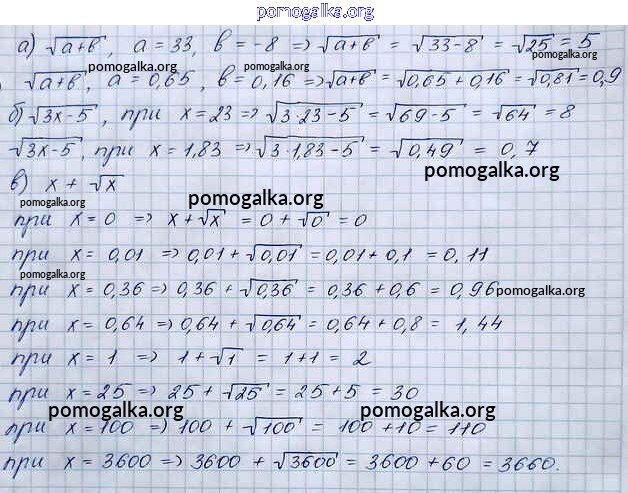 pomogalka.org
а) √(a+b), a = 33, b = -8 => √(a+b) = √(33-8) = √25 = 5
pomogalka.org pomogalka.org
√(a+b), a = 0,65, b = 0,16 => √(a+b) = √(0,65 + 0,16) = √0,81 = 0,9
б) √(3x-5), при x = 23 => √(3·23-5) = √(69-5) = √64 = 8
√(3x-5), при x = 1,83 => √(3·1,83-5) = √0,49 = 0,7
pomogalka.org pomogalka.org
в) x + √x
pomogalka.org
при x = 0 => x + √x = 0 + √0 = 0
при x = 0,01 => 0,01 + √0,01 = 0,01 + 0,1 = 0,11
pomogalka.org
при x = 0,36 => 0,36 + √0,36 = 0,36 + 0,6 = 0,96
pomogalka.org
при x = 0,64 => 0,64 + √0,64 = 0,64 + 0,8 = 1,44
при x = 1 => 1 + √1 = 1+1 = 2
при x = 25 => 25 + √25 = 25 + 5 = 30
pomogalka.org pomogalka.org
при x = 100 => 100 + √100 = 100 + 10 = 110
при x = 3600 => 3600 + √3600 = 3600 + 60 = 3660.